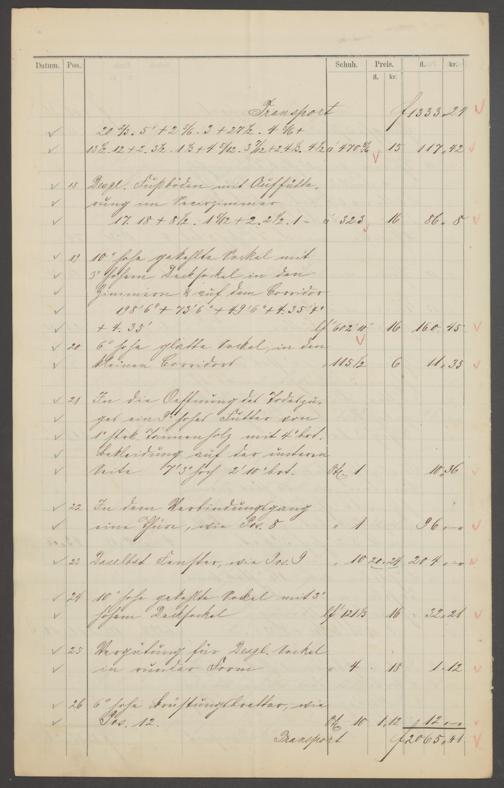 Datum. Pos. Schuh. Preis. fl. kr.
fl. kr.
Transport f 1333.29
20 5' + 2 . 3 + 27 . 4 +
470 15 117.42
18 Desgl. Fußböden mit Auffütte-
rung im
17. 18 + 8 1/2 . 1 + 2 . 2 1/2 . 1 - 323 16 86.8
19 10" hohe gekehlte Sockel mit
3" hohem Decksockel in den
Zimmern & auf dem Corridor
198'6" + 73'6" + 49'6" + 4.35'
+ 4.33' 16 160.45
20 6" hohe glatte Sockel, in den
kleinen Corridors 115 1/2 6 11.33
21 In die Oeffnung des
ein hohes Futter von
1" stark Tannenholz mit 4" brt.
Bekleidung auf der unteren
Seite 7'3" hoch 2'10" brt. 1 10.36
22 In dem Verbindungsgang
eine Thüre, wie Pos. 8 " 1 96.—
23 Daselbst Fenster, wie Pos. 9 " 10 20.24 204.—
24 10" hohe gekehlte Sockel mit 3"
hohem Decksockel 121 16 32.21
25 Vergütung für Desgl. Sockel
in runder Form " 4 18 1.12
26 6" hohe Brüstungsbretter, wie
Pos. 12. 10 1.12 12.—
Transport f 2065.41